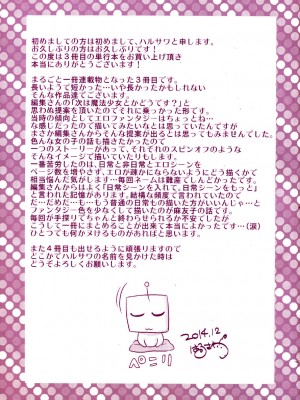 初めましての方は初めまして、ハルサワと申します。
お久しぶりの方はお久しぶりです！
この度は3冊目の単行本をお買い上げ頂き
本当にありがとうございます！
まるごと一冊連載物となった3冊目です。
長いようで短かった…いや長かったかもしれない
そんな作品達でございます。
編集さんの「次は魔法少女とかどうです？」と
思わぬ提案を頂いたのでそれに乗っかった形です。
当時の傾向としてエロファンタジーはちょっとね…
な感じだったので描いてみたいなとは思っていたんですが
まさか編集さんからそんな提案が出るとは思ってもみませんでした。
色んな女の子の話も描きたかったのもあって、
一つのストーリーがあって、それぞれのスピンオフのような
そんなイメージで描いていたりもします。
一番苦労したのは、日常と非日常とエロシーンを
ページ数を増やさず、エロが疎かにならないようにどう描くかで
相当悩んだ気がします…毎回ネームは難産でしんどかったです。
編集さんからはよく「日常シーンを入れて。日常シーンをもっと」
と言われた記憶があります。結構な頻度で言われていたので
だ…だめだ…も…もう普通の日常も描いた方がいいんじゃ…と
ファンタジー色を少なくして描いたのが麻友子の話です。
毎回が手探りでちゃんと終わらせられるか不安でしたが
こうして一冊にまとめることが出来て本当によかったです…(涙)
ひとつでも何かヌけるものがあればと思います。
また4冊目も出せるように頑張りますので
どこかでハルサワの名前を見かけた時は
どうぞよろしくお願いします。
2014.12
はるさわ
ペニリ